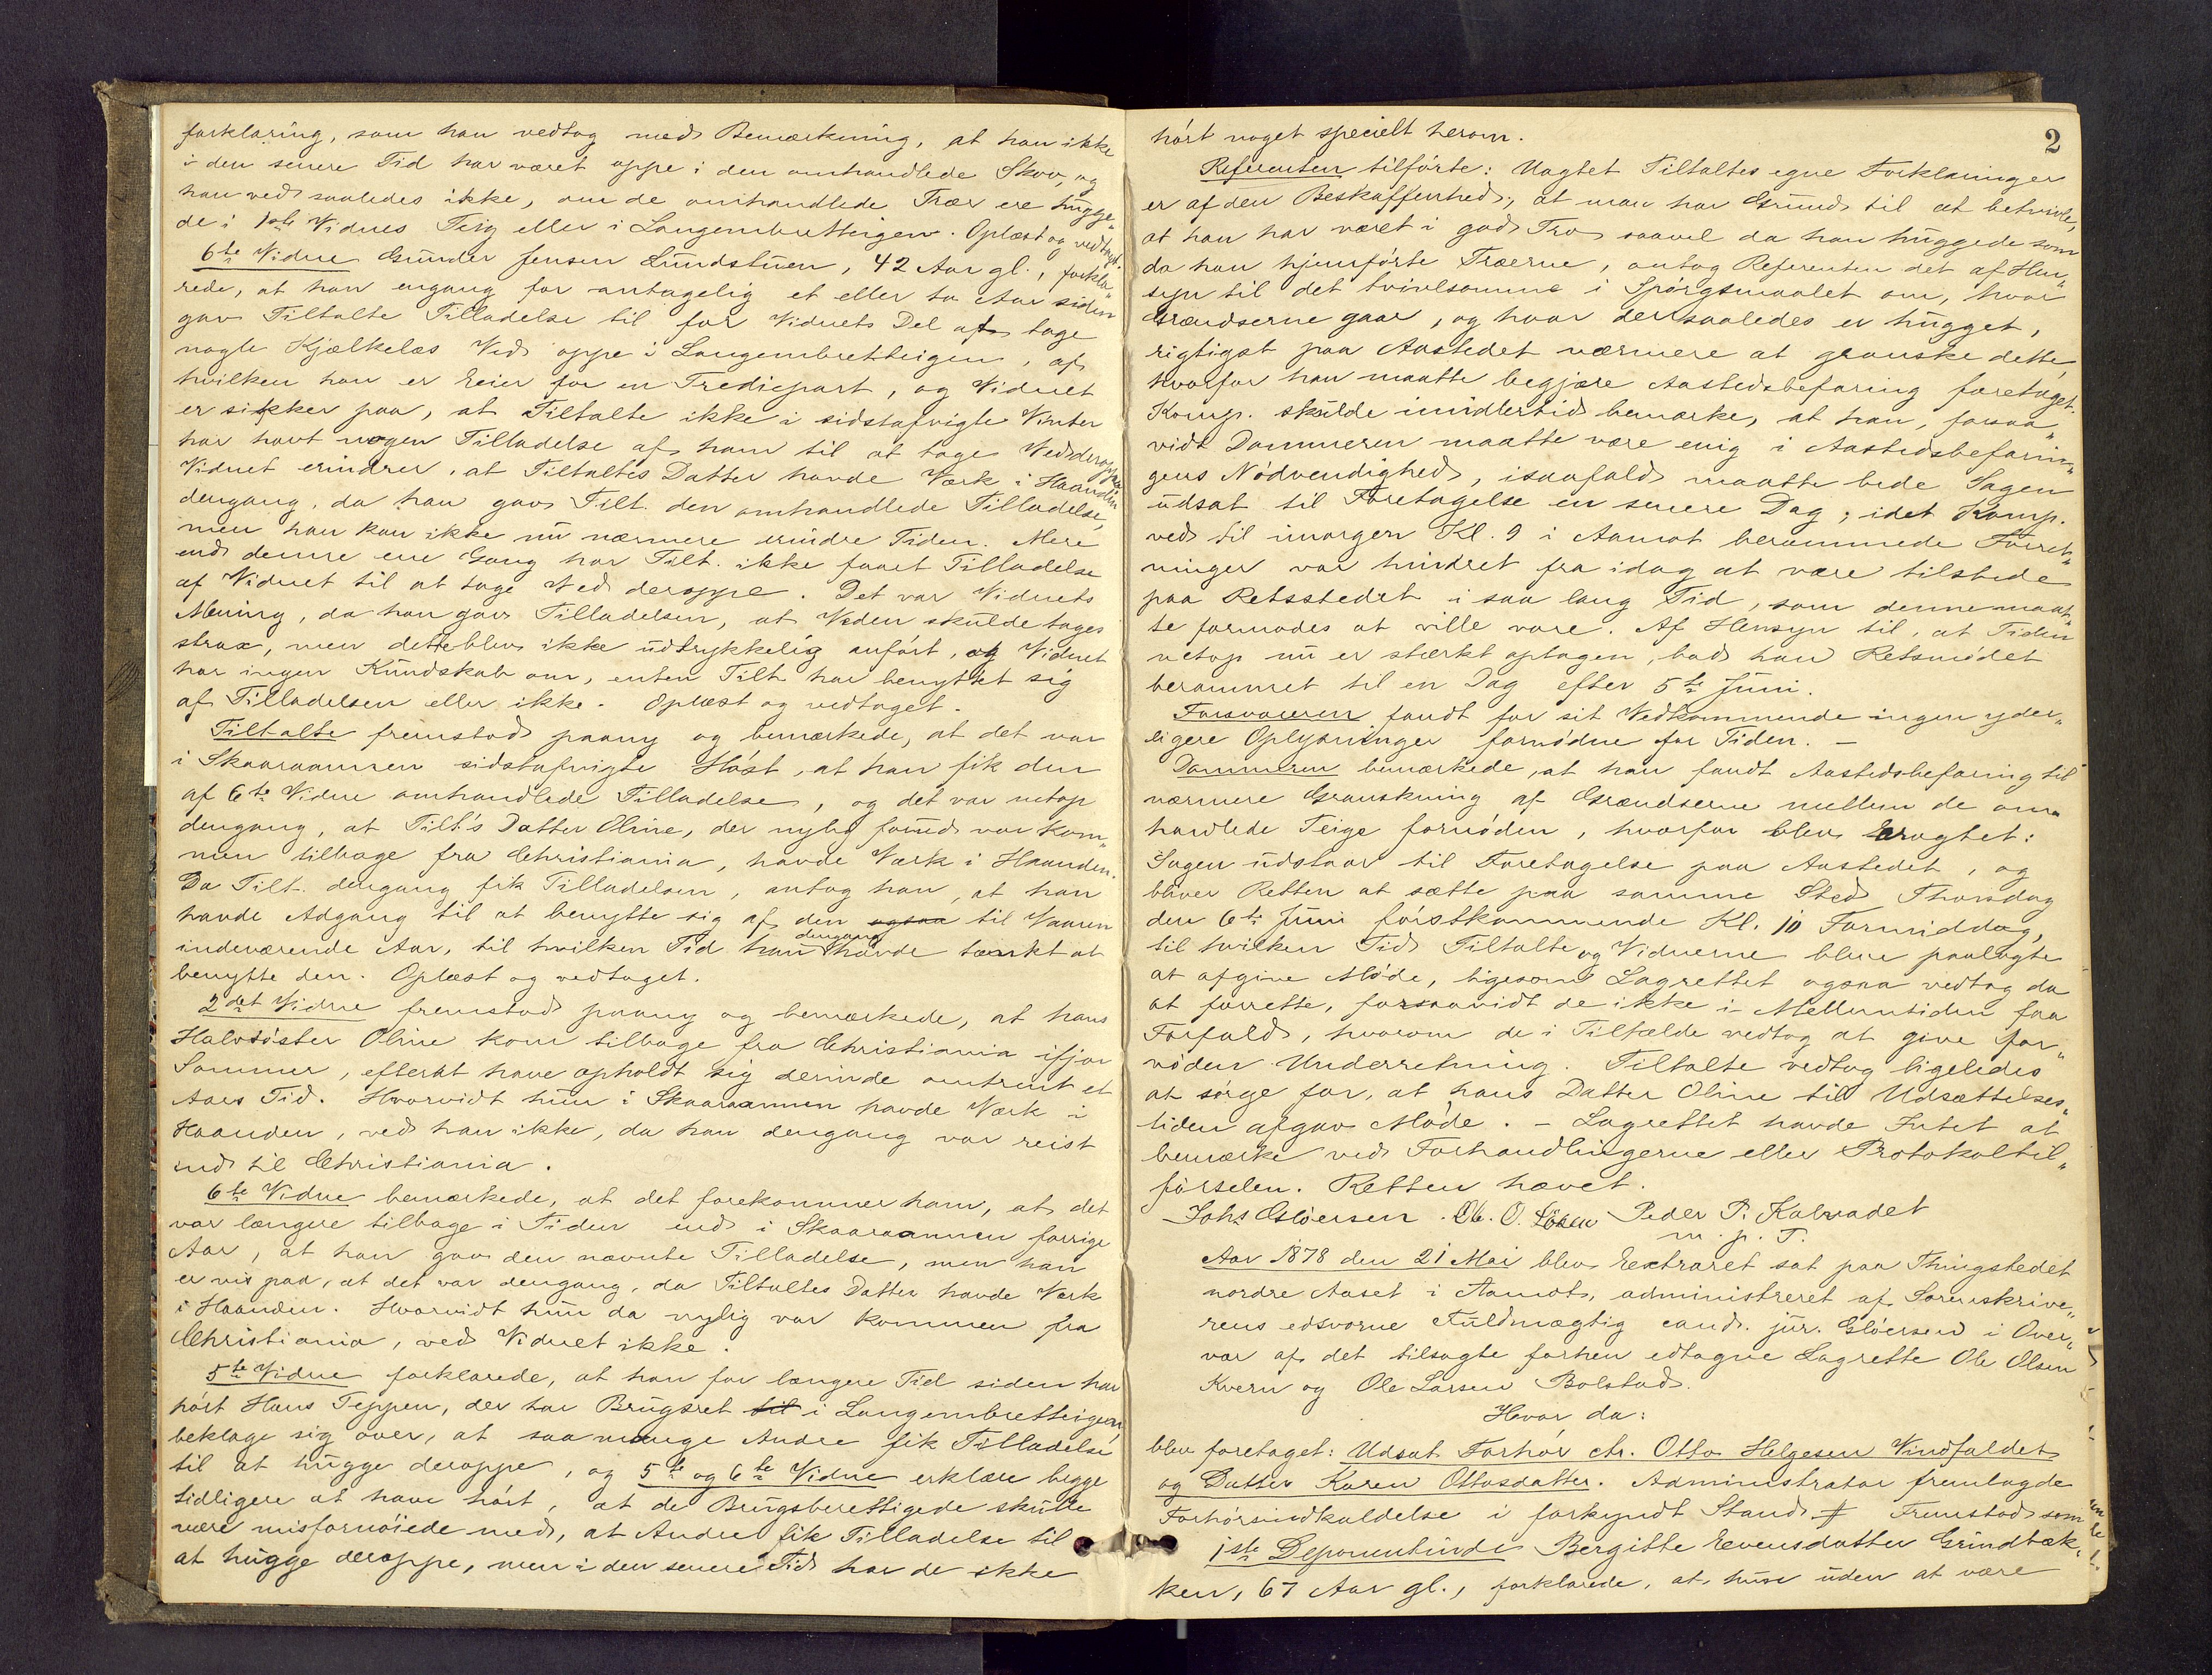 forklaring, som han vedtog med Bemærkning, at han ikke
i den senere Tid har været oppe i den omhandlede Skov, og
han ved saaledes ikke, om de omhandlede Trær ere hugge„
de i 1ste Vidnes Teig eller i Langembretteigen. Oplæst og vedtaget.
6te Vidne Gunder Jensen Lundstuen, 42 Aar gl., forkla„
rede, at han engang for antagelig et eller to Aar siden
gav Tiltalte Tilladelse til for Vidnets Del at tage
nogle Kjælkelæs Ved oppe i Langembretteigen, af
hvilken han er Eier for en Trediepart, og Vidnet
er sikker paa, at Tiltalte ikke i sidstafvigte Vinter
har havt nogen Tilladelse af ham til at tage Ved deroppe.
Vidnet erindrer, at Tiltaltes Datter havde Værk i Haanden
dengang, da han gav Tilt. den omhandlede Tilladelse,
men han kan ikke nu nærmere erindre Tiden. Mere
end denne ene Gang har Tilt. ikke faaet Tilladelse
af Vidnet til at tage Ved deroppe. Det var Vidnets
Mening, da han gav Tilladelsen, at Veden skulde tages
strax, men dette blev ikke udtrykkelig anført, og Vidnet
har ingen Kundskab om, enten Tilt. har benyttet sig
af Tilladelsen eller ikke. Oplæst og vedtaget.
Tiltalte fremstod paany og bemærkede, at det var
i Skaaraannen sidstafvigte Høst, at han fik den
af 6te Vidne omhandlede Tilladelse, og det var netop
dengang, at Tilt's Datter Oline, der nylig forud var kom„
men tilbage fra Christiania, havde Værk i Haanden.
Da Tilt. dengang fik Tilladelsen, antog han, at han
havde Adgang til at benytte sig af den ogsaa til Vaaren
indeværende Aar, til hvilken Tid han dengang havde tænkt at
benytte den. Oplæst og vedtaget.
2det Vidne fremstod paany og bemærkede, at hans
Halvsøster Oline kom tilbage fra Christiania ifjor
Sommer, efterat have opholdt sig derinde omtrent et
Aars Tid. Hvorvidt hun i Skaaraannen havde Værk i
Haanden, ved han ikke, da han dengang var reist
ind til Christiania.
6te Vidne bemærkede, at det forekommer ham, at det
var længere tilbage i Tiden end i Skaaraannen forrige
Aar, at han gav den nævnte Tilladelse, men han
er vis paa, at det var dengang, da Tiltaltes Datter havde Værk
i Haanden. Hvorvidt hun da nylig var kommen fra
Christiania, ved Vidnet ikke.
5te Vidne forklarede, at han for længere Tid siden har
hørt Hans Teppen, der har Brugsret til i Langembretteigen,
beklage sig over, at saa mange Andre fik Tilladelse
til at hugge deroppe, og 5te og 6te Vidne erklære begge
tidligere at have hørt, at de Brugsberettigede skulle
være misfornøiede med, at Andre fik Tilladelse til
at hugge deroppe, men i den senere Tid har de ikke
2
hørt noget specielt herom.
Referenten tilførte: Uagtet Tiltaltes egne Forklaringer
er af den Beskaffenhed, at man har Grund til at betvivle,
at han har været i god Tro saavel da han huggede som
da han hjemførte Træerne, antog Referenten det af Hen„
syn til det tvivlsomme i Spørgsmaalet om, hvor
Grændserne gaar, og hvor der saaledes er hugget,
rigtigst paa Aastedet nærmere at granske dette,
hvorfor han maatte begjære Aastedsbefaring foretaget.
Komp. skulde imidlertid bemærke, at han, forsaa„
vidt Dommeren maatte være enig i Aastedsbefarin„
gens Nødvendighed, isaafald maatte bede Sagen
udsat til Foretagelse en senere Dag; idet Komp.
ved til imorgen Kl. 9 i Aamot berammede Forret„
ninger var hindret fra idag at være tilstede
paa Retsstedet i saa lang Tid, som denne maat„
te formodes at ville vare. Af Hensyn til, at Tiden
netop nu er stærkt optagen, bad han Retsmødet
berammet til en Dag efter 5te Juni.
Forsvareren fandt for sit Vedkommende ingen yder„
ligere Oplysninger fornødne for Tiden. –
Dommeren bemærkede, at han fandt Aastedsbefaring til
nærmere Granskning af Grændserne mellem de om„
handlede Teige fornøden, hvorfor blev Eragtet:
Sagen udstaar til Foretagelse paa Aastedet, og
bliver Retten at sætte paa samme Sted Thorsdag
den 6te Juni førstkommende Kl. 10 Formiddag,
til hvilken Tid Tiltalte og Vidnerne bleve paalagte
at afgive Møde, ligesom Lagrettet ogsaa vedtog da
at forrette, forsaavidt de ikke i Mellemtiden faa
Forfald, hvorom de i Tilfælde vedtog at give for„
nøden Underretning. Tiltalte vedtog ligeledes
at sørge for, at hans Datter Oline til Udsættelses„
tiden afgav Møde. – Lagrettet havde Intet at
bemærke ved Forhandlingerne eller Protokoltil„
førselen. Retten hævet.
Johs Gløersen. Ol. O. Løken Peder P. Kalvadet
m. p. P.
Aar 1878 den 21 Mai blev Extraret sat paa Thingstedet
nordre Aaset i Aamot, administreret af Sorenskrive„
rens edsvorne Fuldmægtig cand. jur. Gløersen i Over„
var af det tilsagte forhen edtagne Lagrette Ole Olsen
Kvern og Ole Larsen Bolstad.
Hvor da:
blev foretaget: Udsat Forhør ctr. Otto Helgesen Vindfaldet
og Datter Karen Ottosdatter. Administrator fremlagde
Forhørsindkaldelse i forkyndt Stand # Fremstod som
1ste Deponentinde Bergitte Evensdatter Grindbæk„
ken, 67 Aar gl., forklarede, at hun uden at være